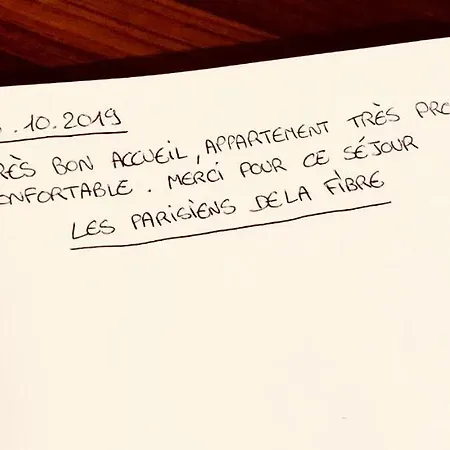 .10.2019
RÈS BON ACCUEIL, APPARTEMENT TRÈS PRO
ONFORTABLE. MERCI POUR CE SÉJOUR
LES PARISIENS DE LA FIBRE